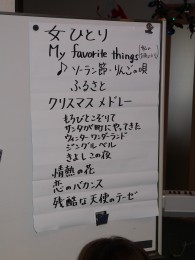 女ひとり
My favorite things
♪ソーラン節・りんごの唄
ふるさと
クリスマスメドレー
もろびとこぞりて
サンタが町にやってきた
ウィンターワンダーランド
ジングルベル
きよしこの夜
情熱の花
恋のバカンス
残酷な天使のテーゼ